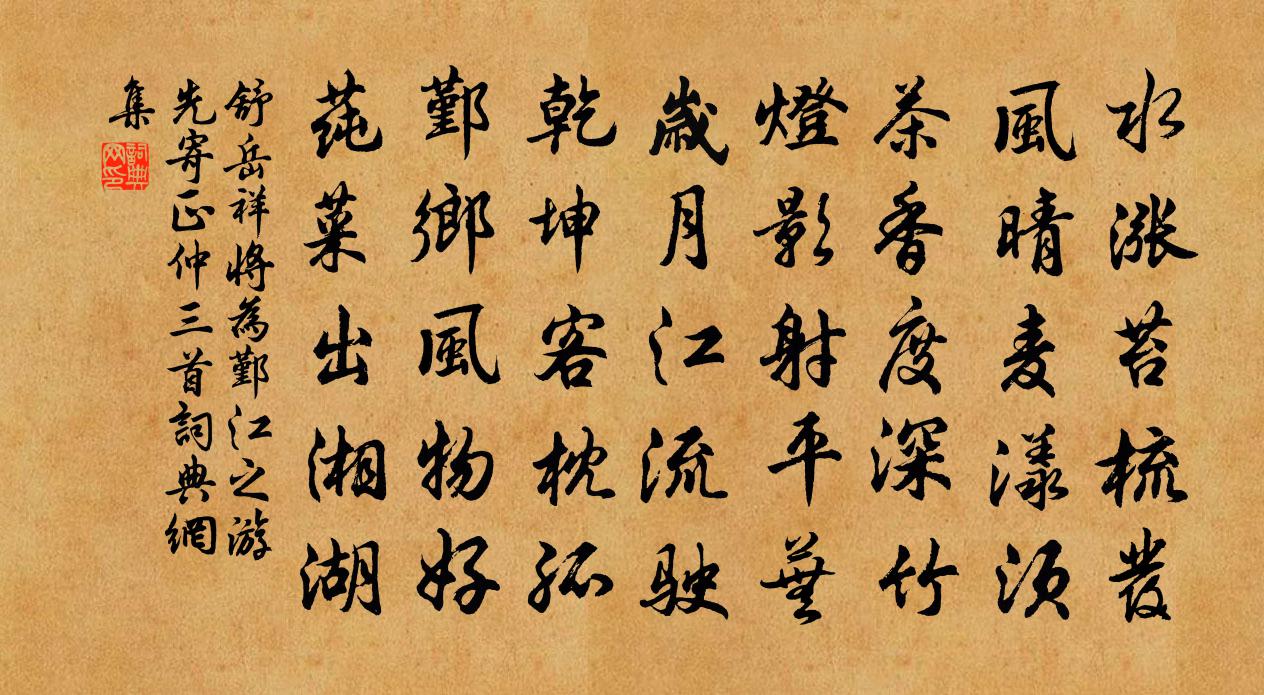 水漲苔梳發
風晴麦漾須
茶香度深竹
燈影射平蕪
歲月江流駛
乾坤客枕孤
鄞鄉風物好
蒓菜出湘湖
舒岳祥將為鄞江之游
先寄正仲三首詞典網
集
詞典網印